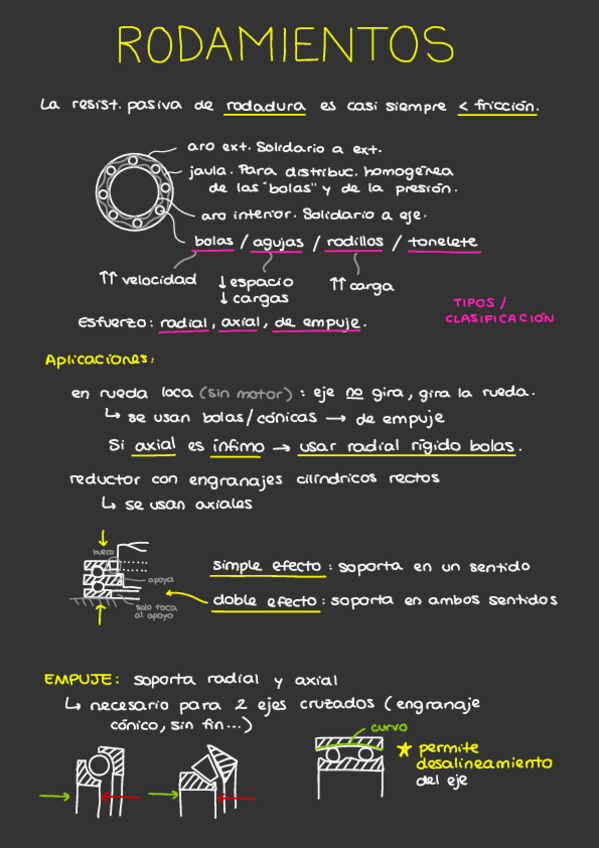 RODAMIENTOS
La resist. pasiva de rodadura es casi siempre < fricción.
aro ext. Solidario a ext.
jaula. Para distribuc. homogénea
de las "bolas" y de la presión.
aro interior. Solidario a eje.
bolas / agujas / rodillos / tonelete
↑↑ velocidad
↓ espacio
↓ cargas
↑↑ carga
Esfuerzo: radial, axial, de empuje.
TIPOS /
CLASIFICACIÓN
Aplicaciones:
en rueda loca (sin motor) : eje no gira, gira la rueda.
↳ se usan bolas/cónicas → de empuje
Si axial es ínfimo → usar radial rígido bolas.
reductor con engranajes cilíndricos rectos
↳ se usan axiales
hueco
apoya
solo toca
al apoyo
simple efecto : soporta en un sentido
doble efecto : soporta en ambos sentidos
EMPUJE: soporta radial y axial
↳ necesario para 2 ejes cruzados (engranaje
cónico, sin fin...)
curvo
★ permite
desalineamiento
del eje